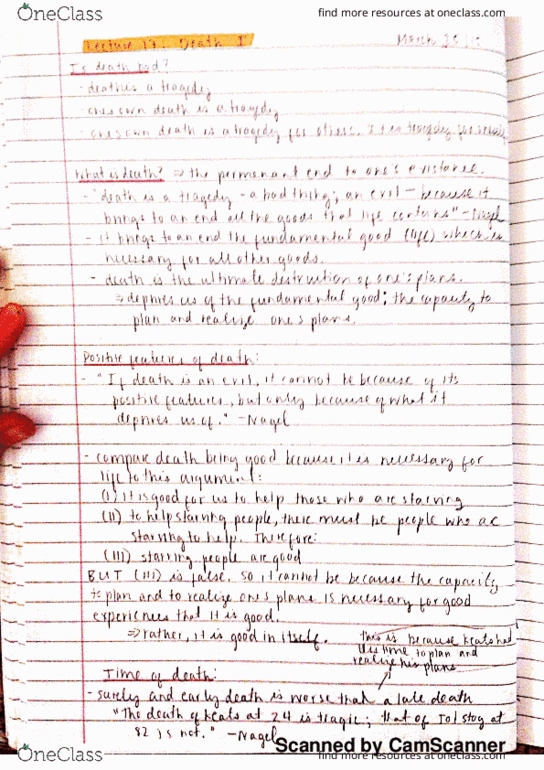 OneClass
find more resources at oneclass.com
Lecture 17: Death I
March
Is death bad?
- death is a tragedy
- ones own death is a tragedy
- ones own death is a tragedy for others,
What is death? ⇒ the permanent end to one's existance.
- "death is a tragedy - a bad thing; an evil — because it
brings to an end all the goods that life contains" -Nagel
- it brings to an end the fundamental good (life) which is
necessary for all other goods.
- death is the ultimate destruction of one's plans.
⇒ deprives us of the fundamental good: the capacity to
plan and realize one's plans.
Positive features of death:
- "If death is an evil, it cannot be because of its
positive features, but only because of what it
deprives us of." -Nagel
- compare death being good because it is necessary for
life to this argument:
(I) it is good for us to help those who are starving
(II) to help starving people, there must be people who are
starving to help. Therefore:
(III) starving people are good
BUT (III) is false. So it cannot be because the capacity
to plan and to realize one's plans is necessary for good
experiences that it is good.
⇒ rather, it is good in itself.
this is because Keats had
less time to plan and
realize his plans
Time of death:
- surely and early death is worse that a late death
"The death of Keats at 24 is tragic; that of Tolstoy at
82 is not." -Nagel
Scanned by CamScanner
OneClass
find more resources at oneclass.com